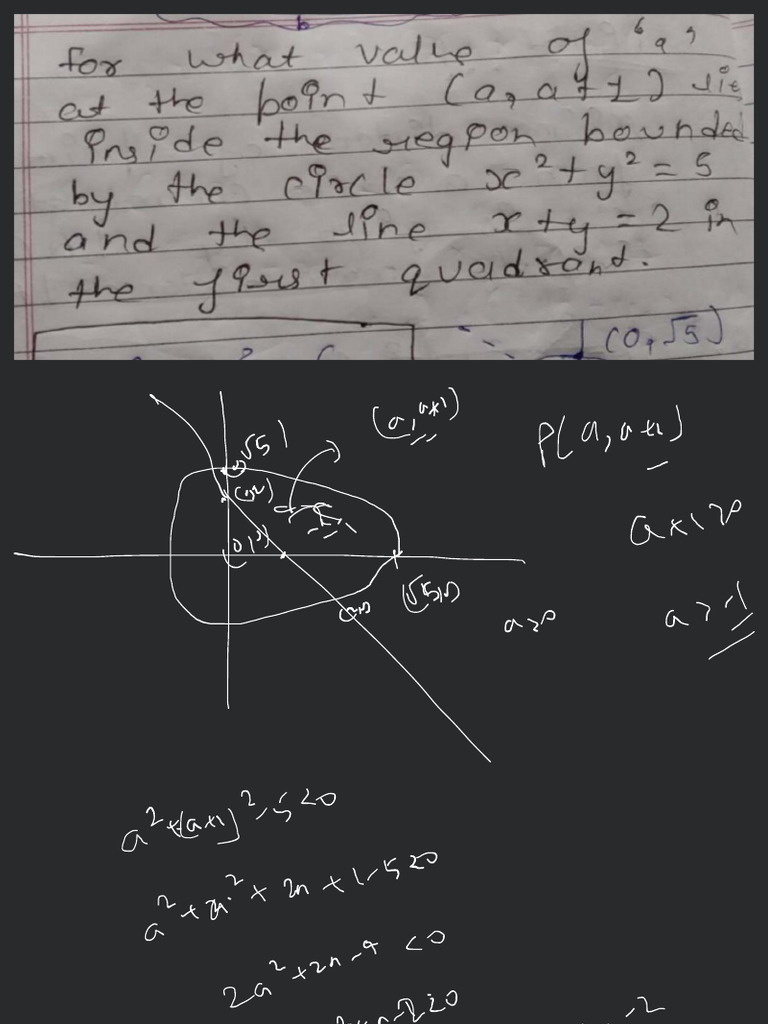 for what value of 'a'
at the point (a, a+1) lie
inside the region bounded
by the circle x²+y² = 5
and the line x+y = 2 in
the first quadrant.
(0,√5)
(a, a+1)
P(a, a+1)
√5)
(0,2)
a+1>0
(√5,0)
a>0
a > -1
a²+(a+1)²-5<0
+ 1-5<0
<0
-2